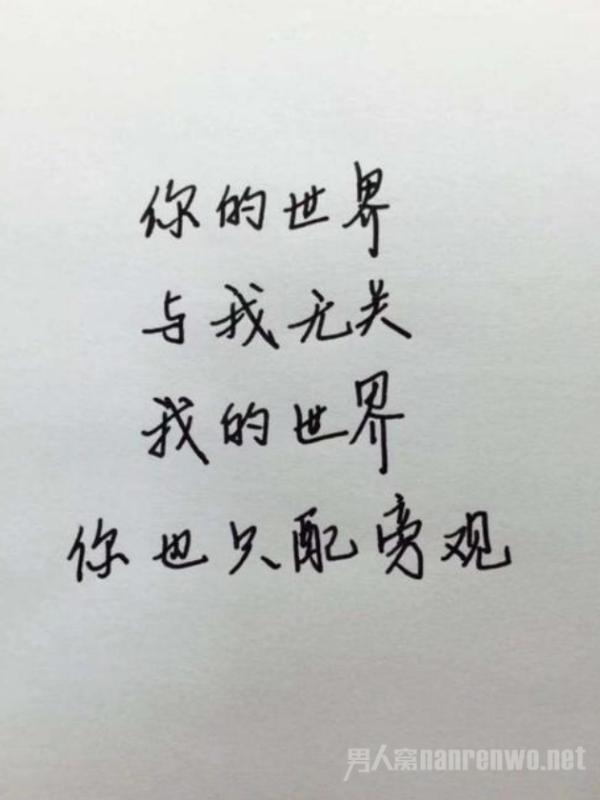 你的世界
与我无关
我的世界
你也只配旁观
男人窝nanrenwo.net